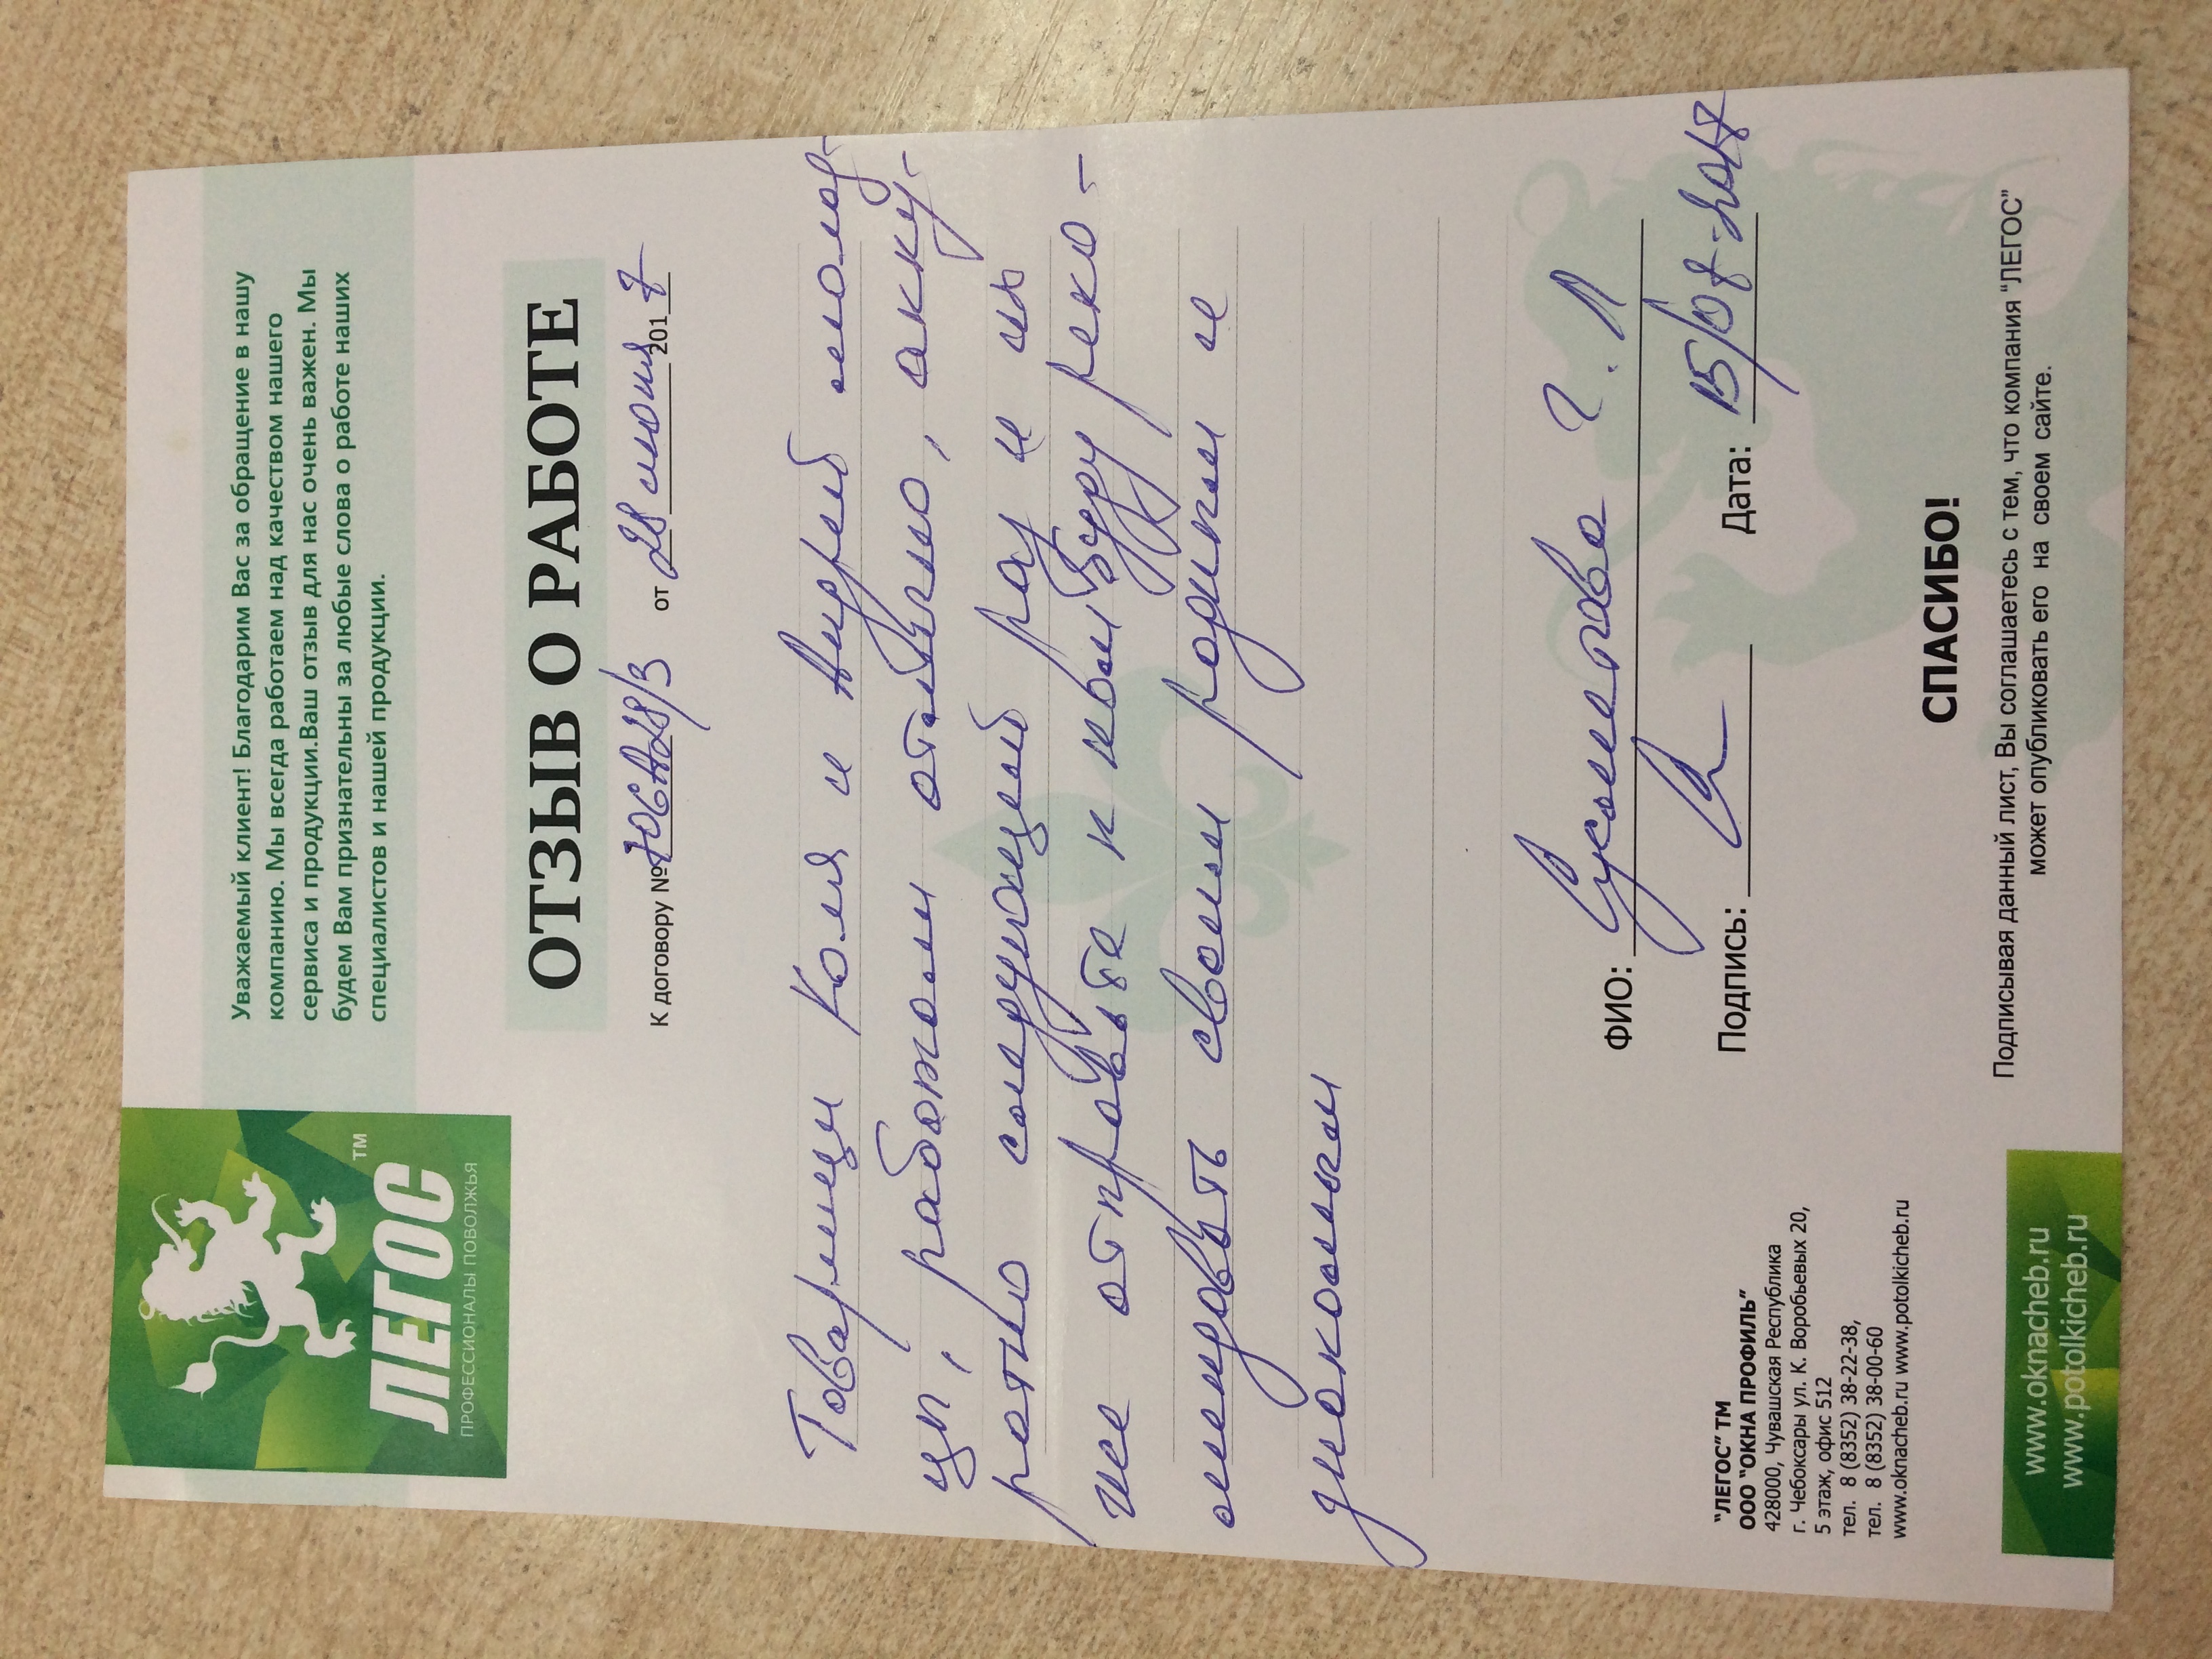 ЛЕГОС™
ПРОФЕССИОНАЛЫ ПОВОЛЖЬЯ
Уважаемый клиент! Благодарим Вас за обращение в нашу
компанию. Мы всегда работаем над качеством нашего
сервиса и продукции.Ваш отзыв для нас очень важен. Мы
будем Вам признательны за любые слова о работе наших
специалистов и нашей продукции.
ОТЗЫВ О РАБОТЕ
К договору № 706А28/3 от 28 июня 2017
Товарищи Коля и Андрей молод-
цы, работали отлично, акку-
ратно следующий раз и их
же отправьте к нам буду реко-
мендовать своим родным и
знакомым
ФИО: Г. Л
Подпись:
Дата: 15/07-2017
"ЛЕГОС" ТМ
ООО "ОКНА ПРОФИЛЬ"
428000, Чувашская Республика
г. Чебоксары ул. К. Воробьевых 20,
5 этаж, офис 512
тел. 8 (8352) 38-22-38,
тел. 8 (8352) 38-00-60
www.oknacheb.ru www.potolkicheb.ru
СПАСИБО!
Подписывая данный лист, Вы соглашаетесь с тем, что компания "ЛЕГОС"
может опубликовать его на своем сайте.
www.oknacheb.ru
www.potolkicheb.ru